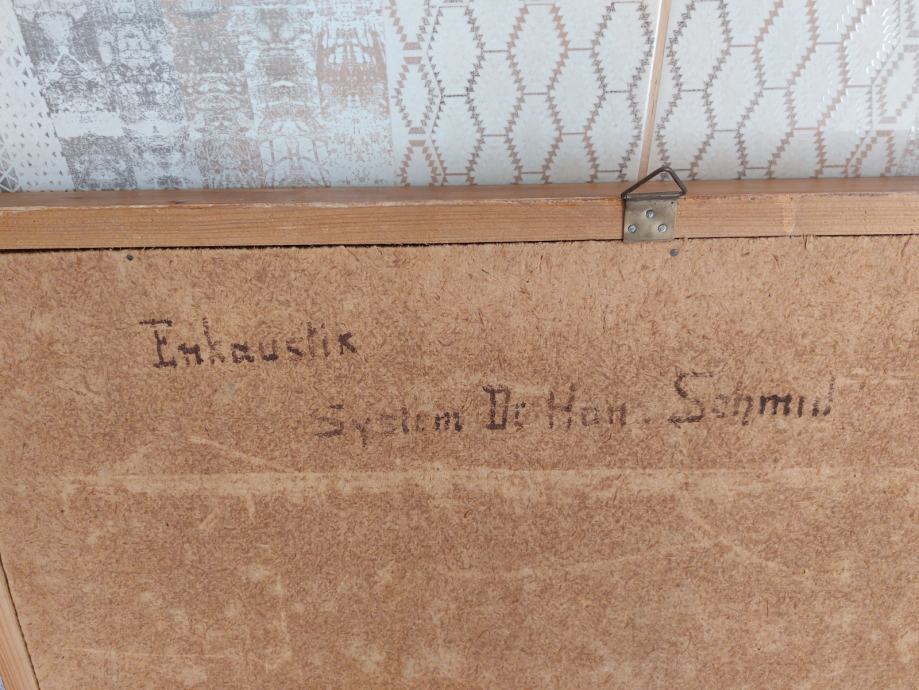 Enkaustik
System Dr. Hans Schmid